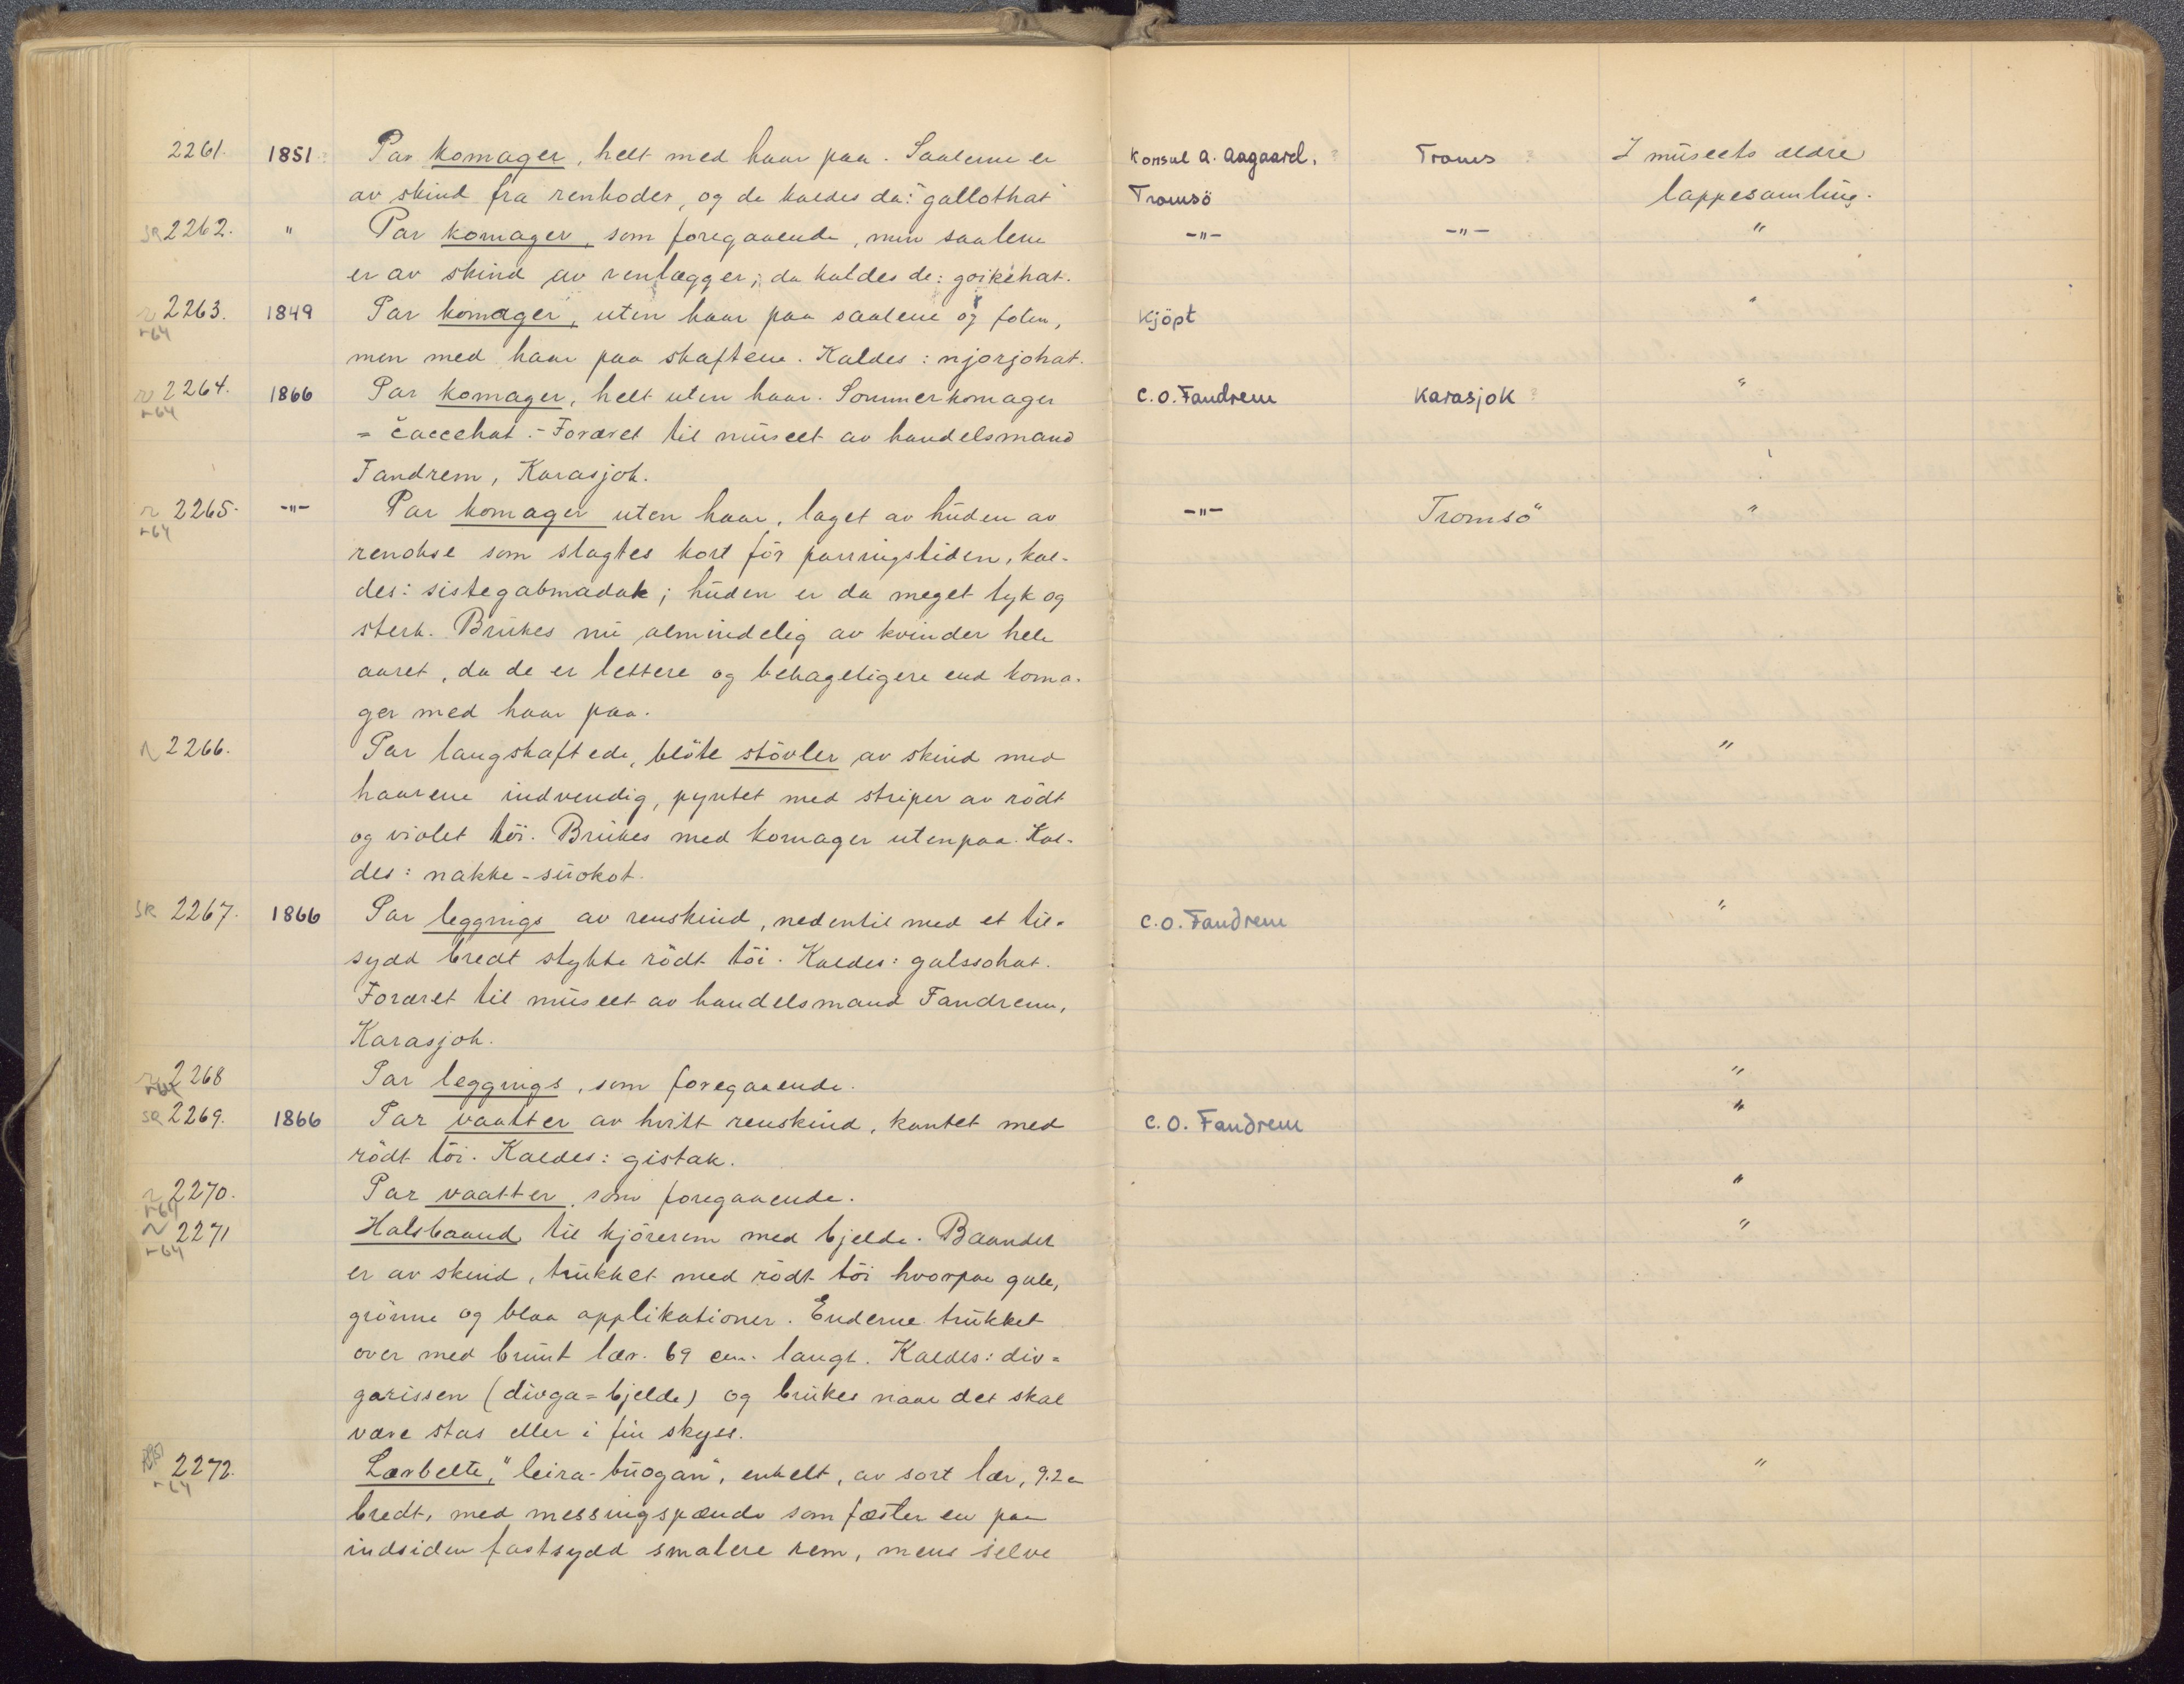 2261. 1851 Par komager, helt med haar paa. Saalerne er Konsul A. Aagaard, Troms I museets ældre
av skind fra renhoder, og de kaldes da: "gallothat" Tromsö lappesamling.
2262. " Par komager, som foregaaende, men saalene -"- -"- "
er av skind av renlægger; da kaldes de: goikehat.
2263. 1849 Par komager, uten haar paa saalene og foten, Kjöpt "
r 64
men med haar paa skaftene. Kaldes: njorjohat.
2264. 1866 Par komager, helt uten haar. Sommerkomager C.O. Fandrem Karasjok "
r 64
= čaccehat. - Foræret til museet av handelsmand
Fandrem, Karasjok.
2265. -"- Par komager uten haar, laget av huden av -"- Tromsö "
r 64
renokse som slagtes kort för parringstiden, kal-
des: sistegabmadak; huden er da meget tyk og
sterk. Brukes nu almindelig av kvinder hele
aaret, da de er lettere og behageligere end koma-
ger med haar paa.
2266. Par langskaftede, blöte stövler av skind med "
haarene indvendig, pyntet med striper av rödt
og violet töi. Brukes med komager utenpaa. Kal-
des: nakke-suokot.
2267. 1866 Par leggings av renskind, nedentil med et til- C.O. Fandrem "
sydd bredt stykke rödt töi. Kaldes: galssohat.
Foræret til museet av handelsmand Fandrem,
Karasjok.
2268 Par leggings, som foregaaende. "
2269. 1866 Par vaatter av hvitt renskind, kantet med C.O. Fandrem "
rödt töi. Kaldes: gistak.
2270. Par vaatter, som foregaaende. "
r 64
2271 Halsbaand til kjörerem med bjelde. Baandet "
r 64
er av skind, trukket med rödt töi hvorpaa gule,
grönne og blaa applikationer. Enderne trukket
over med brunt lær. 69 cm. langt. Kaldes: div-
garissen (divga = bjelde) og brukes naar det skal
være stas eller i fin skyss.
2272. Lærbelte, "leira-buogan", enkelt, av sort lær, 9.2 "
bredt, med messingspænde som fæster en paa
indsiden fastsydd smalere rem, mens selve